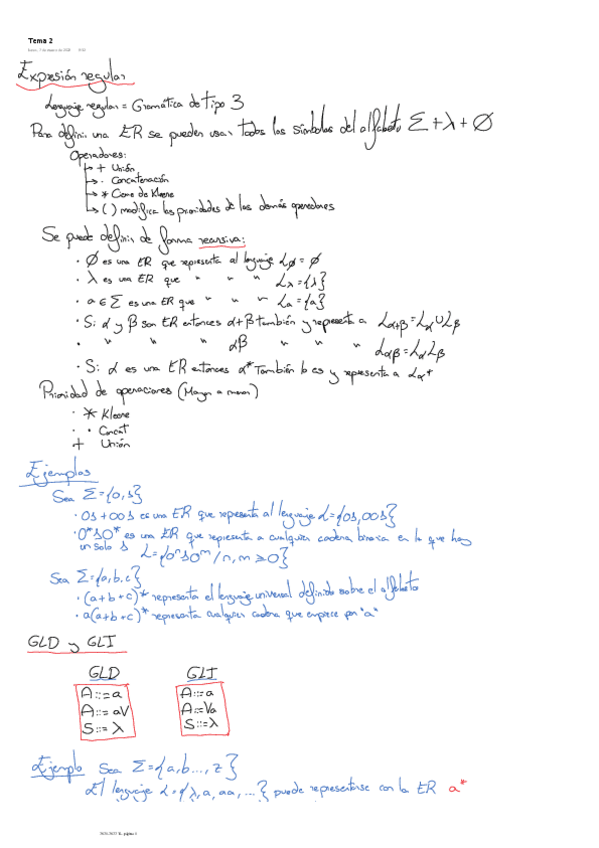 Tema 2
Expresión regular
Lenguaje regular = Gramática de tipo 3
Para definir una ER se pueden usar todos los símbolos del alfabeto Σ + λ + Ø
Operadores:
+ Unión
· Concatenación
* Cierre de Kleene
( ) modifica las prioridades de los demás operadores
Se puede definir de forma recursiva:
· Ø es una ER que representa al lenguaje L∅ = Ø
· λ es una ER que " " " Lλ = {λ}
· a ∈ Σ es una ER que " " " La = {a}
· Si α y β son ER entonces α+β también y representa a Lα+β = Lα ∪ Lβ
· " " " " αβ " " " Lαβ = LαLβ
· Si α es una ER entonces α* también lo es y representa a Lα*
Prioridad de operaciones (Mayor a menor)
· * Kleene
· · Concat
+ Unión
Ejemplos
Sea Σ = {0,1}
· 01+001 es una ER que representa al lenguaje L = {01,001}
· 0*10* es una ER que representa a cualquier cadena binaria en la que hay
un solo 1 L = {0ⁿ10ᵐ / n, m ≥ 0}
Sea Σ = {a,b,c}
· (a+b+c)* representa el lenguaje universal definido sobre el alfabeto
· a(a+b+c)* representa cualquier cadena que empiece por "a"
GLD y GLI
GLD GLI
A::=a A::=a
A::=aV A::=Va
S::=λ S::=λ
Ejemplo Sea Σ = {a,b...,z}
El lenguaje L = {λ, a, aa, ...} puede representarse con la ER a*